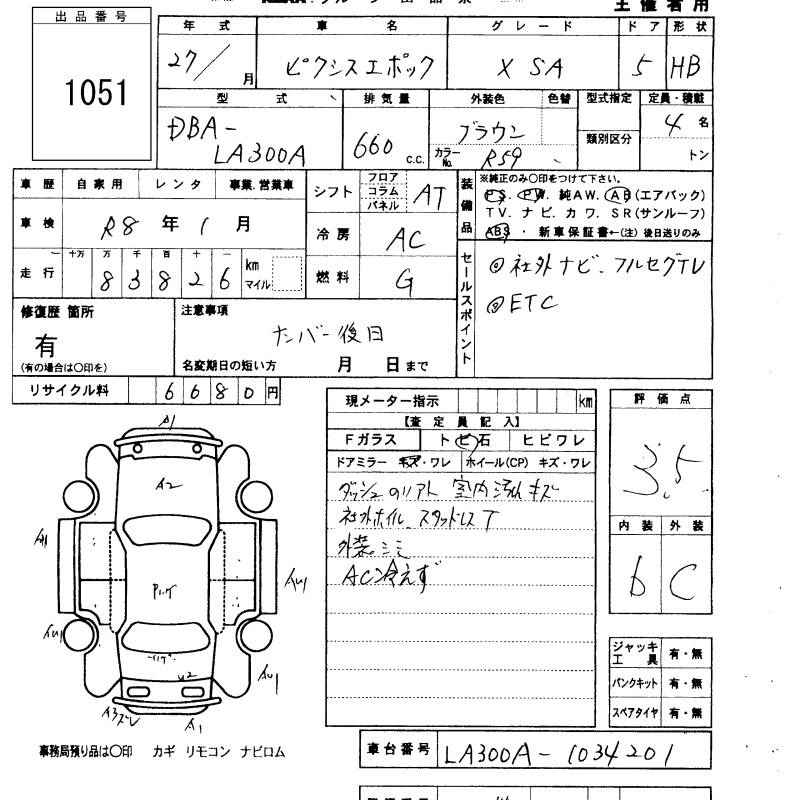 主催者用
出品番号
1051
年式 車名 グレード ドア 形状
27/ 月 ピクシスエポック X SA 5 HB
型式 排気量 外装色 色替 型式指定 定員・積載
DBA-
LA300A
660 c.c.
ブラウン
カラーNo. R59
類別区分
4 名
トン
車歴 自家用 レンタ 事業.営業車
車検 R8 年 1 月
走行 十万 万 千 百 十 一
8 3 8 2 6 km マイル
シフト フロア コラム パネル AT
冷房 AC
燃料 G
装備品
※純正のみ〇印をつけて下さい。
PS. PW. 純AW. AB(エアバック)
TV. ナビ. カワ. SR(サンルーフ)
ABS ・ 新車保証書←(注) 後日送りのみ
セールスポイント
◎社外ナビ、フルセグTV
◎ETC
修復歴 箇所
有
(有の場合は〇印を)
注意事項
ナンバー後日
名変期日の短い方 月 日まで
リサイクル料 6 6 8 0 円
現メーター指示 km
【査定員記入】
Fガラス トビ石 ヒビワレ
ドアミラー キズ・ワレ ホイール(CP) キズ・ワレ
室内汚れ キズ
社外ホイル スタッドレスT
AC冷えず
評価点
3.5
内装 外装
b C
ジャッキ工具 有・無
パンクキット 有・無
スペアタイヤ 有・無
A1
A2
A1
AU1
AU1
AU1
U2
A3ズレ
A1
事務局預り品は〇印 カギ リモコン ナビロム
車台番号 LA300A-1034201